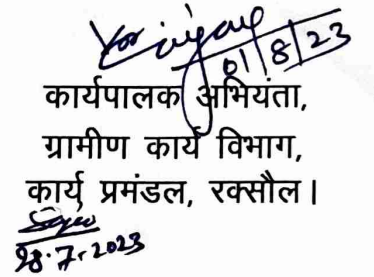 01/8/23
कार्यपालक अभियंता,
ग्रामीण कार्य विभाग,
कार्य प्रमंडल, रक्सौल।
28.7.2023